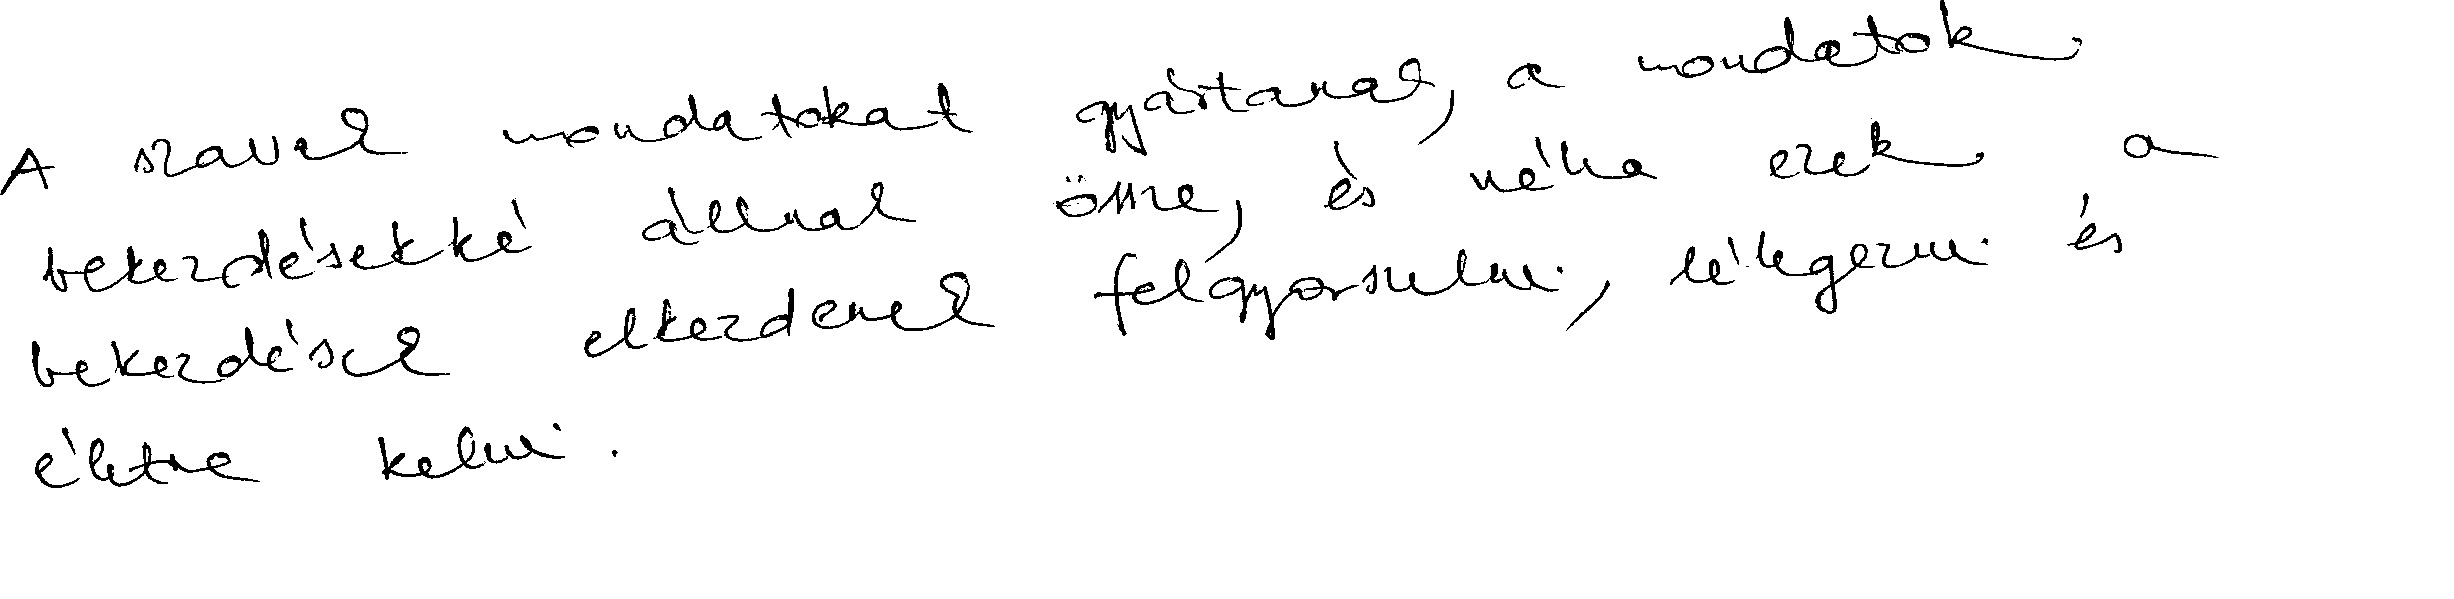 A szavak mondatokat gyártanak, a mondatok
bekezdésekké állnak össze, és néha ezek a
bekezdések elkezdenek felgyorsulni, lélegezni és
életre kelni.